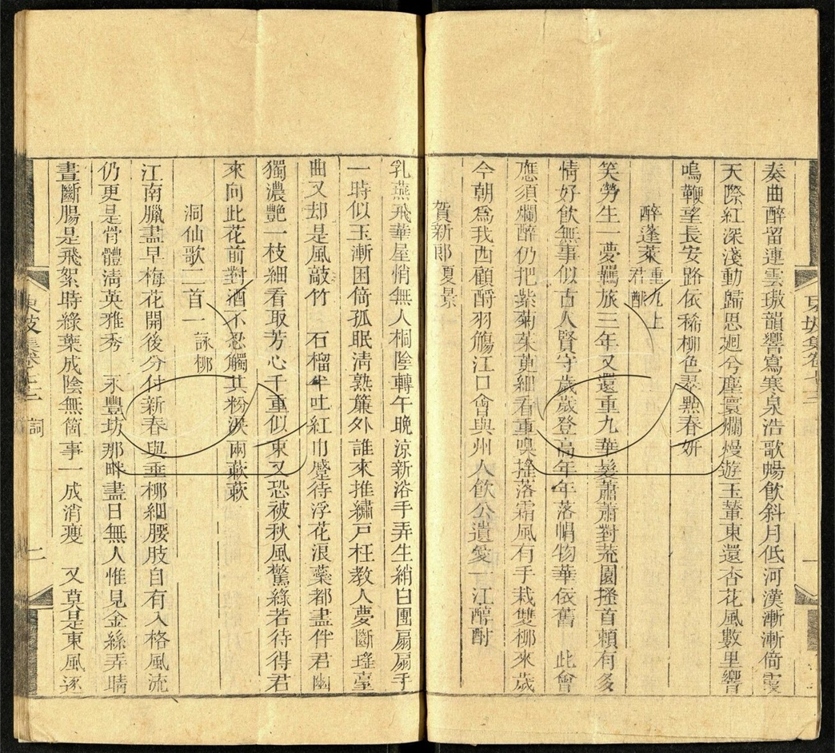 奏曲醉留連雲璈韻響寫寒泉浩歌暢飲斜月低河漢漸漸倚霞
天際紅深淺動歸思迴兮塵寰爛熳遊玉輦東還杏花風數里響
鳴鞭望長安路依稀柳色翠點春妍
醉蓬萊重九上君猷
笑勞生一夢羈旅三年又還重九華髮蕭蕭對荒園搔首賴有多
情好飲無事似古人賢守歲歲登高年年落㡌物華依舊 此會
應須爛醉仍把紫菊茱萸細看重嗅搖落霜風有手栽雙桺來歲
今朝爲我西顧酹羽觴江口會與州人飲公遺愛一江醇酎
賀新郎夏景
乳燕飛華屋悄無人桐陰轉午晚涼新浴手弄生綃白團扇扇手
一時似玉漸困倚孤眠清熟簾外誰來推繡戸枉教人夢斷瑤臺
曲又却是風敲竹 石榴半吐紅巾蹙待浮花浪蘂都盡伴君幽
獨濃艷一枝細看取芳心千重似束又恐被秋風驚綠若待得君
來向此花前對酒不忍觸共粉淚兩蔌蔌
洞仙歌二首一詠桺
江南臘盡早梅花開後分付新春與垂桺細腰肢自有入格風流
仍更是骨體清英雅秀 永豐坊那畔盡日無人惟見金絲弄晴
晝斷腸是飛絮時綠葉成陰無箇事一成消瘦 又莫是東風逐
東坡集卷七十三 詞 二
東坡集卷七十三